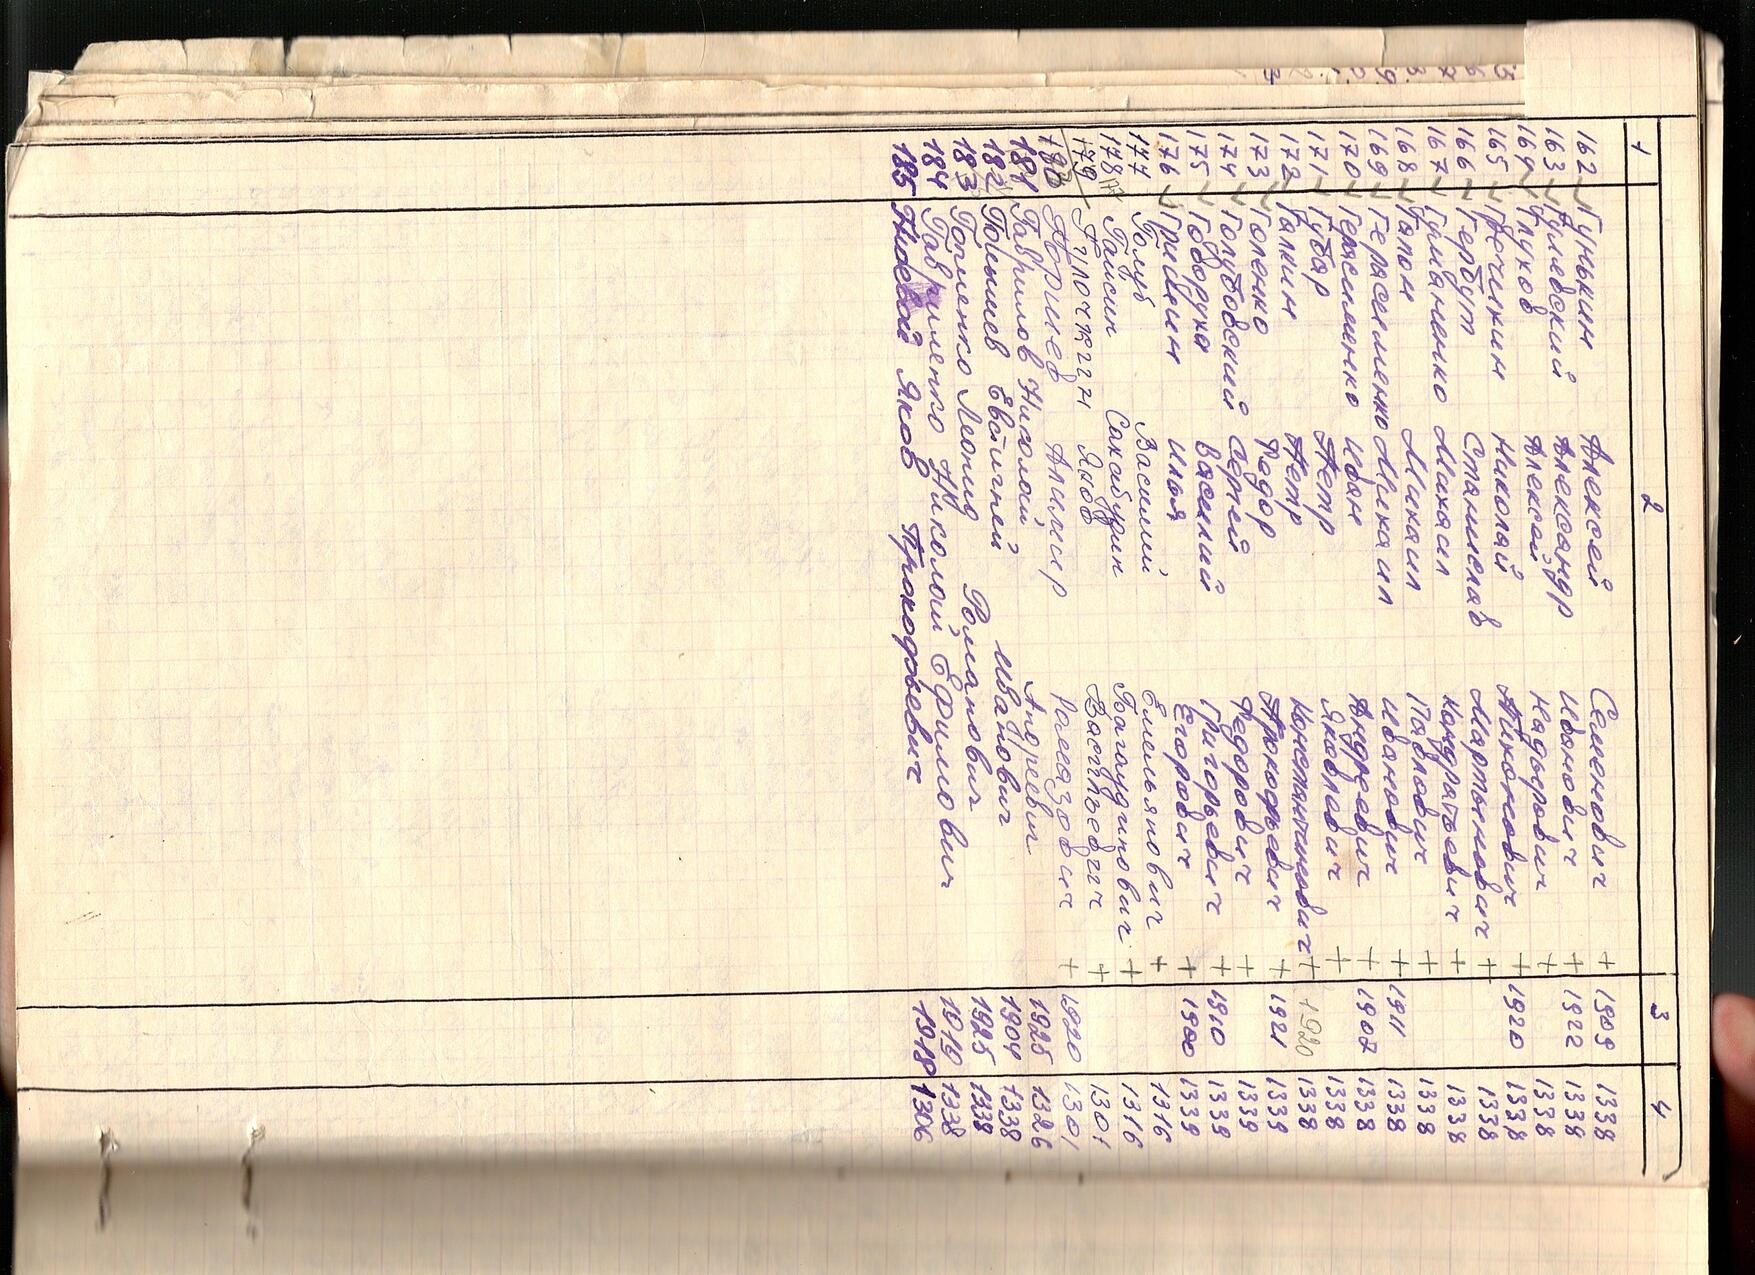 1 2 3 4
162 Гунькин Алексей Семенович + 1909 1338
163 Гулевский Александр Иванович + 1922 1338
164 Глухов Алексей + 1338
165 Гречихин Николай + 1920 1338
166 Гербут Станислав Мартынович + 1338
167 Гуманенко Михаил Кондратьевич + 1338
168 Гапон Михаил Павлович + 1338
169 Герасименко Михаил Иванович + 1911 1338
170 Герасименко Иван Андреевич 1907 1338
171 Губар Петр Яковлевич + 1338
172 Галкин Петр Константинович + 1920 1338
173 Голенко Федор Прокофьевич + 1921 1339
174 Голубовский Сергей Федорович + 1339
175 Говоруха Василий Григорьевич + 1910 1339
176 Грицын Илья Егорович + 1900 1339
177 Голуб Василий Емельянович + 1316
178 Гайсин Богоудинович + 1316
179 Яков Васильевич + 1301
180 + 1920 1301
181 Гаврилов Николай Андреевич 1925 1326
182 Евгигней Иванович 1904 1338
183 Леонид Романович 1925 1338
184 Гавриленко Николай Ефимович 1919 1338
185 Яков Прокофьевич 1306